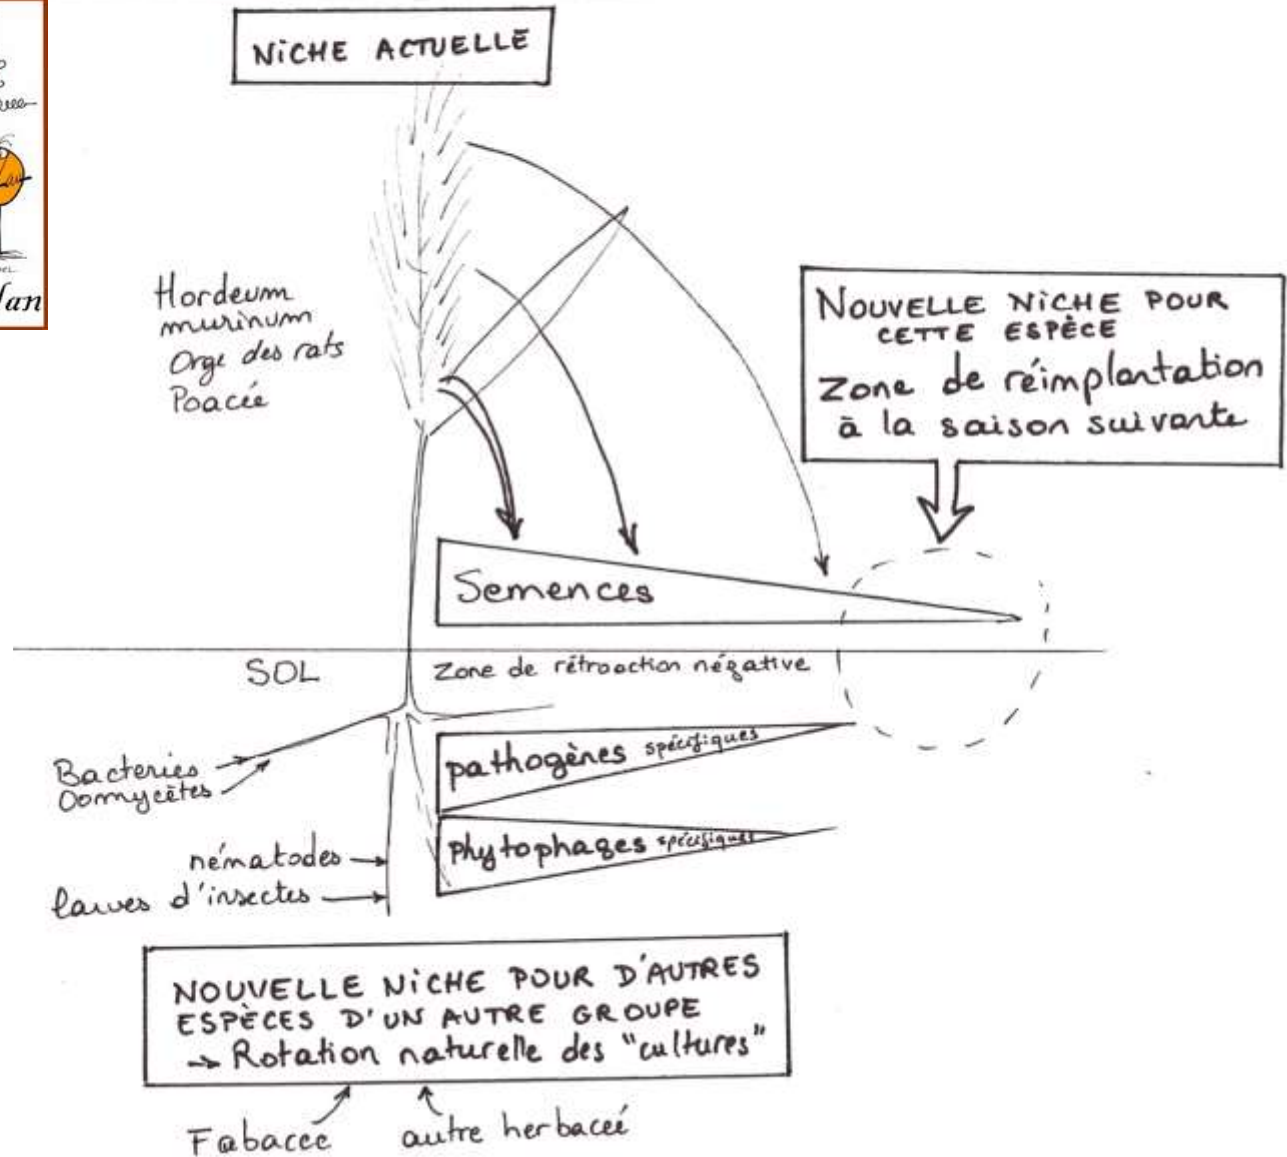 NICHE ACTUELLE
Hordeum
murinum
Orge des rats
Poacée
NOUVELLE NICHE POUR
CETTE ESPÈCE
Zone de réimplantation
à la saison suivante
Semences
SOL
Zone de rétroaction négative
Bacteries
Oomycètes
pathogènes spécifiques
nématodes
phytophages spécifiques
larves d'insectes
NOUVELLE NICHE POUR D'AUTRES
ESPÈCES D'UN AUTRE GROUPE
→ Rotation naturelle des "cultures"
Fabacée
autre herbacée